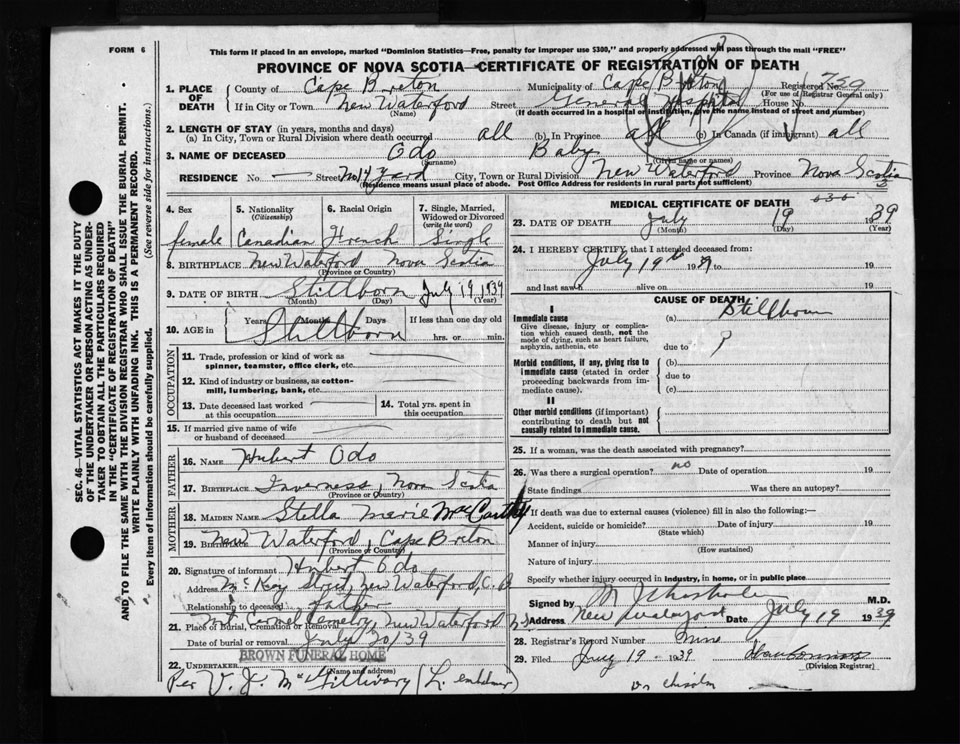 FORM 6
This form if placed in an envelope, marked "Dominion Statistics—Free, penalty for improper use $300," and properly addressed will pass through the mail "FREE"
PROVINCE OF NOVA SCOTIA—CERTIFICATE OF REGISTRATION OF DEATH
1. PLACE OF DEATH County of Cape Breton Municipality of Cape Breton Registered No. 759
(For use of Registrar General only)
If in City or Town New Waterford Street General Hospital House No.
(Name) (If death occurred in a hospital or institution, give the name instead of street and number)
2. LENGTH OF STAY (in years, months and days)
(a) In City, Town or Rural Division where death occurred all (b) In Province all (c) In Canada (if immigrant) all
3. NAME OF DECEASED Odo Baby
(Surname) (Given name or names)
RESIDENCE No. — Street No 14 Yard City, Town or Rural Division New Waterford Province Nova Scotia
(Residence means usual place of abode. Post Office Address for residents in rural parts not sufficient)
4. Sex female
5. Nationality (Citizenship) Canadian
6. Racial Origin French
7. Single, Married, Widowed or Divorced (write the word) Single
8. BIRTHPLACE New Waterford Nova Scotia
(Province or Country)
9. DATE OF BIRTH Stillborn July 19 1939
(Month) (Day) (Year)
10. AGE in Years Months Days Stillborn If less than one day old
hrs. or min.
OCCUPATION
11. Trade, profession or kind of work as spinner, teamster, office clerk, etc.
12. Kind of industry or business, as cotton-mill, lumbering, bank, etc.
13. Date deceased last worked at this occupation
14. Total yrs. spent in this occupation
15. If married give name of wife or husband of deceased
FATHER
16. NAME Hubert Odo
17. BIRTHPLACE Inverness, Nova Scotia
(Province or Country)
MOTHER
18. MAIDEN NAME Stella Marie MacCarthy
19. BIRTHPLACE New Waterford, Cape Breton
(Province or Country)
20. Signature of informant Hubert Odo
Address McKay Street, New Waterford, C.B
Relationship to deceased father
21. Place of Burial, Cremation or Removal Mt Carmel Cemetery, New Waterford NS
Date of burial or removal July 20/39
BROWN FUNERAL HOME
22. UNDERTAKER
(Name and address)
Per V. J. McGillivary (L. embalmer)
MEDICAL CERTIFICATE OF DEATH
23. DATE OF DEATH July 19 1939
(Month) (Day) (Year)
24. I HEREBY CERTIFY, that I attended deceased from:
July 19th 1939 to 19
and last saw h alive on 19
CAUSE OF DEATH
I
Immediate cause (a) Stillborn
Give disease, injury or complication which caused death, not the mode of dying, such as heart failure, asphyxia, asthenia, etc
due to ?
Morbid conditions, if any, giving rise to immediate cause (stated in order proceeding backwards from immediate cause).
(b)
due to
(c)
II
Other morbid conditions (if important) contributing to death but not causally related to immediate cause.
25. If a woman, was the death associated with pregnancy?
26. Was there a surgical operation? no Date of operation 19
State findings Was there an autopsy?
27. If death was due to external causes (violence) fill in also the following:—
Accident, suicide or homicide? Date of injury 19
(State which)
Manner of injury
(How sustained)
Nature of injury
Specify whether injury occurred in industry, in home, or in public place
Signed by M Chisholm M.D.
Address New Waterford Date July 19 1939
28. Registrar's Record Number
29. Filed July 19 1939
(Division Registrar)
Dr Chisholm
SEC. 46—VITAL STATISTICS ACT MAKES IT THE DUTY
OF THE UNDERTAKER OR PERSON ACTING AS UNDERTAKER
TO OBTAIN ALL THE PARTICULARS REQUIRED
IN THE "CERTIFICATE OF REGISTRATION OF DEATH"
AND TO FILE THE SAME WITH THE DIVISION REGISTRAR WHO SHALL ISSUE THE BURIAL PERMIT.
WRITE PLAINLY WITH UNFADING INK. THIS IS A PERMANENT RECORD.
Every item of information should be carefully supplied. (See reverse side for instructions.)